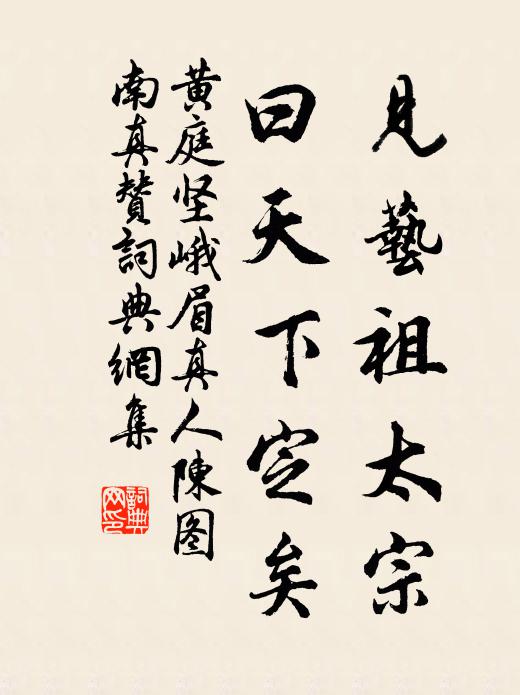 見藝祖太宗
曰天下定矣
黄庭坚峨眉真人陳图
南真贊詞典網集
詞典
网印